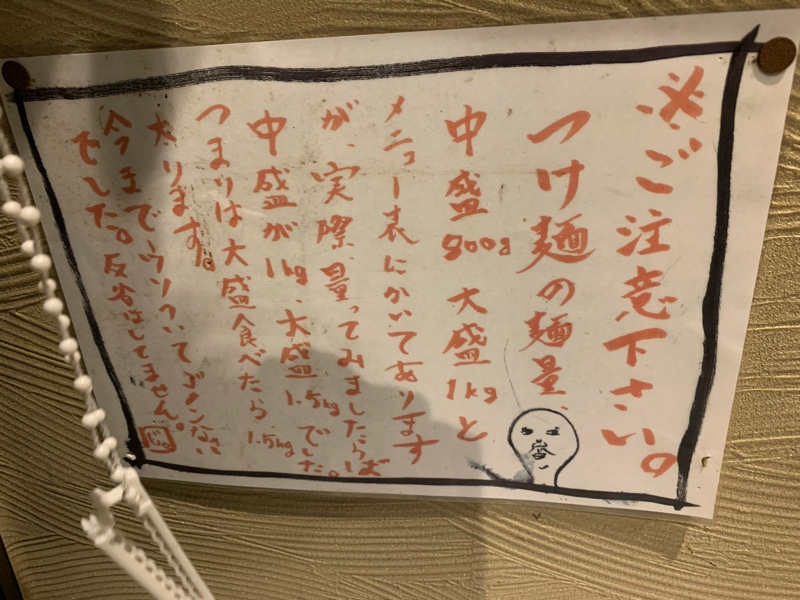 ※ご注意下さい。
つけ麺の麺量、
中盛800g 大盛1kgと
メニュー表にかいてあります
が、実際、量ってみましたらば
中盛が1kg、大盛1.5kgでした。
つまりは大盛食べたら1.5kg
太ります。
今までウソついてゴメンなさい
でした。反省はしてません。